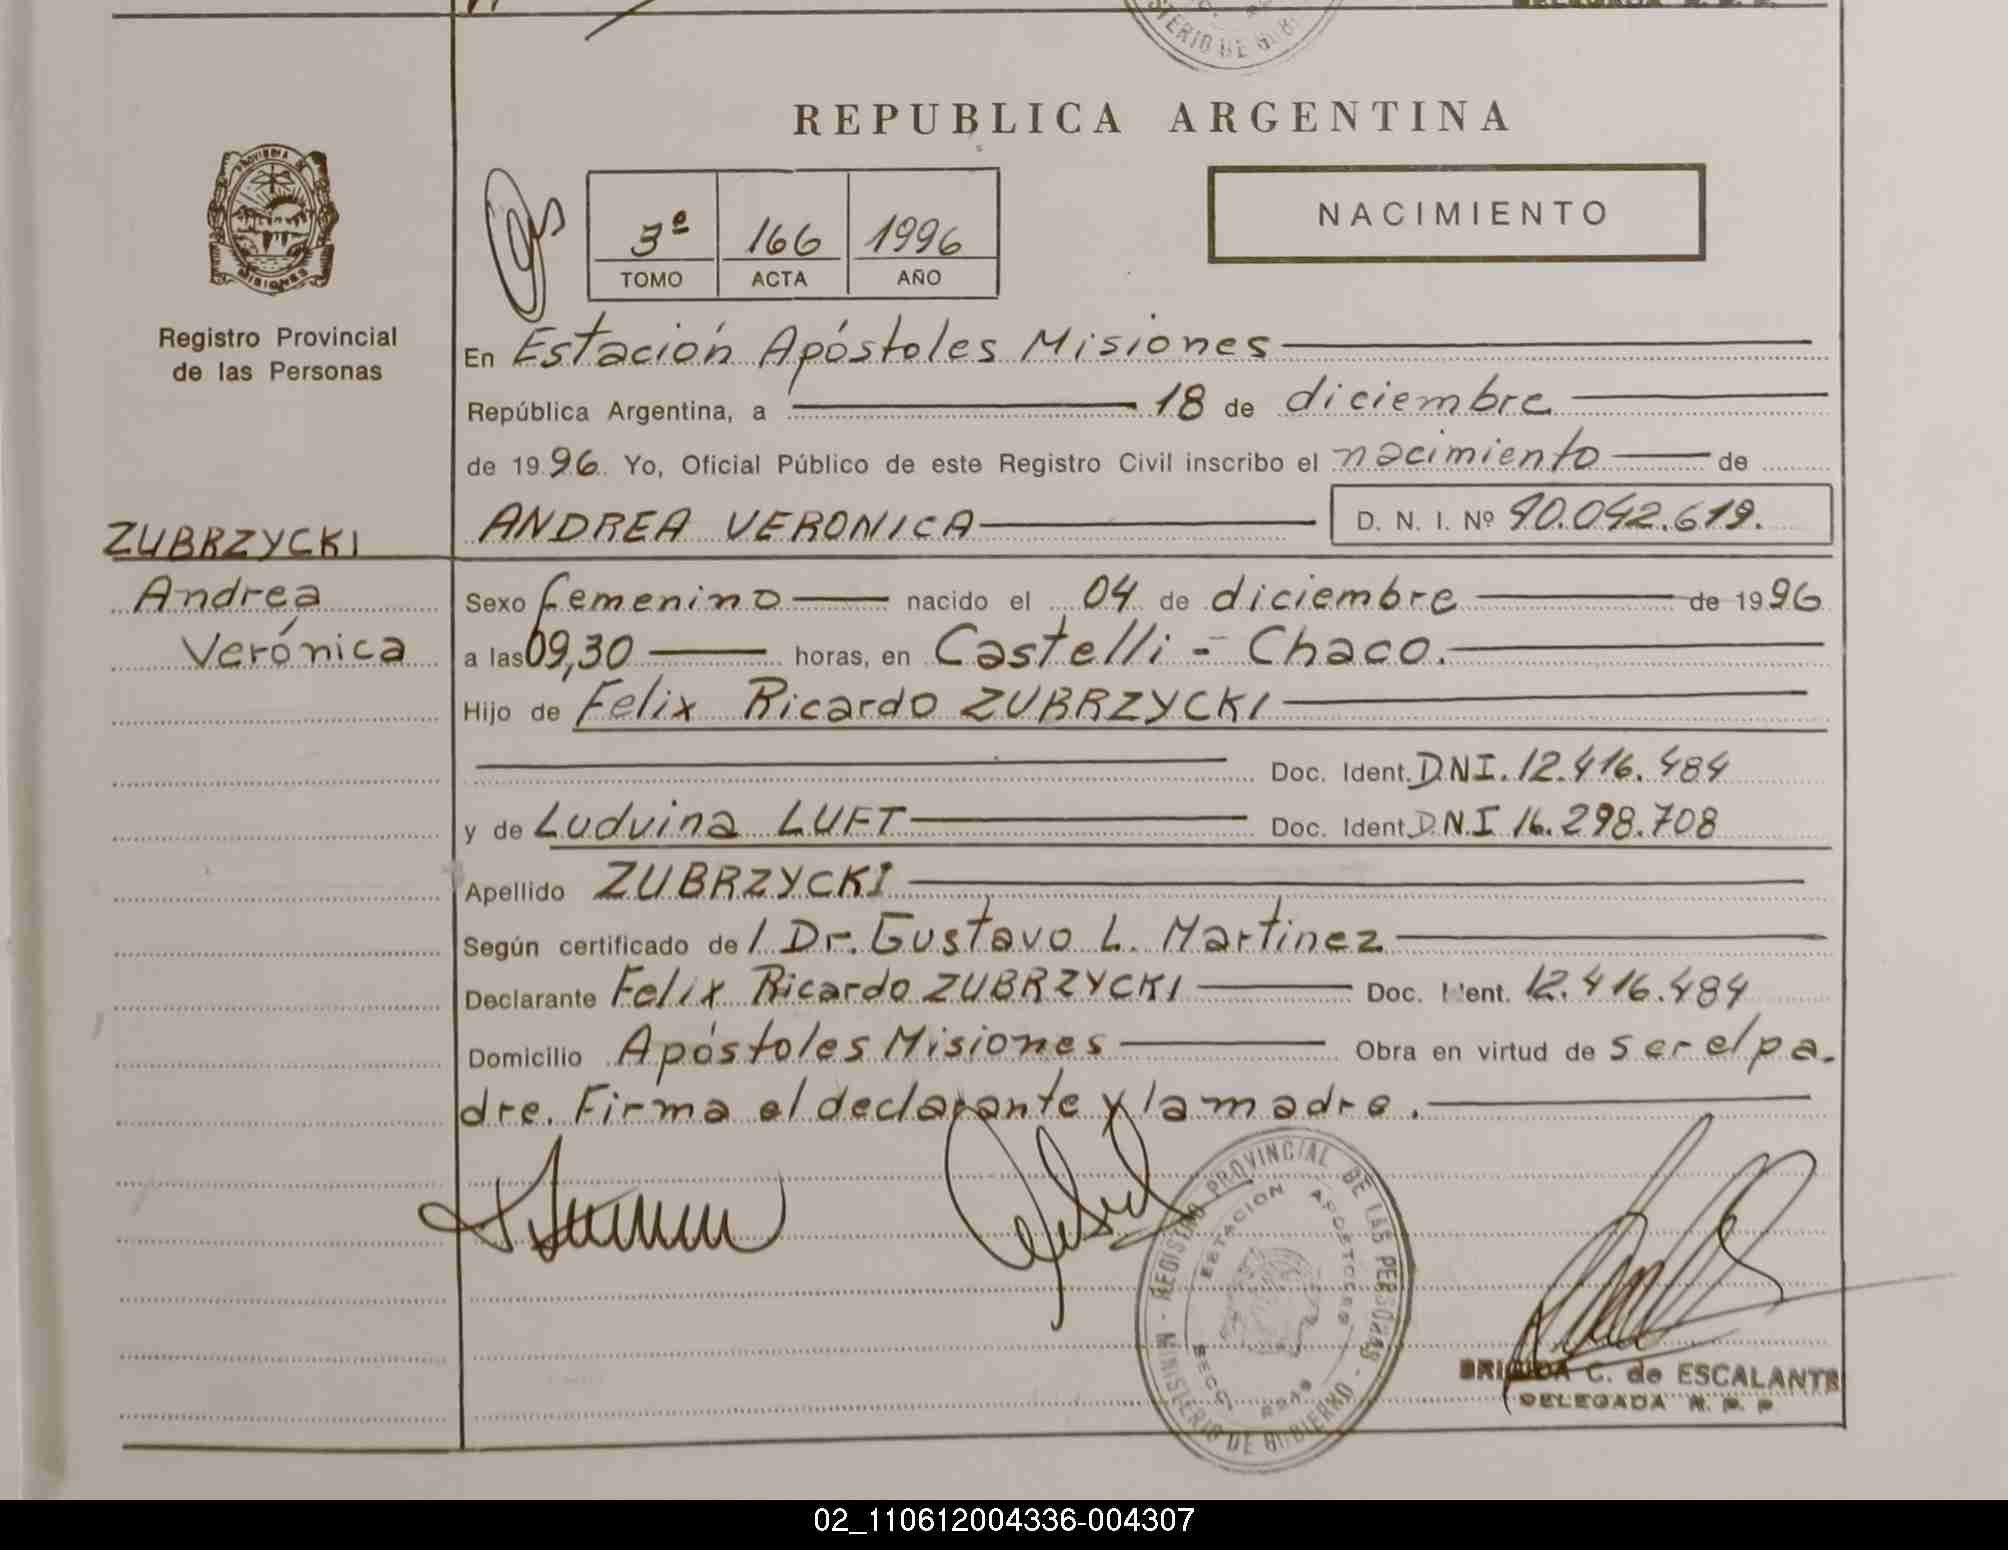 REPUBLICA ARGENTINA
PROVINCIA DE MISIONES
Registro Provincial
de las Personas
3º 166 1996
TOMO ACTA AÑO
NACIMIENTO
En Estación Apóstoles Misiones
República Argentina, a 18 de diciembre
de 1996. Yo, Oficial Público de este Registro Civil inscribo el nacimiento de
ANDREA VERONICA D. N. I. Nº 40.042.619.
ZUBRZYCKI
Andrea
Verónica
Sexo femenino nacido el 04 de diciembre de 1996
a las 09,30 horas, en Castelli - Chaco.
Hijo de Felix Ricardo ZUBRZYCKI
Doc. Ident. DNI. 12.416.484
y de Luduina LUFT Doc. Ident DNI 16.298.708
Apellido ZUBRZYCKI
Según certificado de / Dr. Gustavo L. Martinez
Declarante Felix Ricardo ZUBRZYCKI Doc. I'ent. 12.416.484
Domicilio Apóstoles Misiones Obra en virtud de ser el pa-
dre. Firma el declarante y la madre.
REGISTRO PROVINCIAL DE LAS PERSONAS - MINISTERIO DE GOBIERNO -
ESTACION APOSTOLES
BRIGIDA C. de ESCALANTE
DELEGADA R. P. P.
02_110612004336-004307